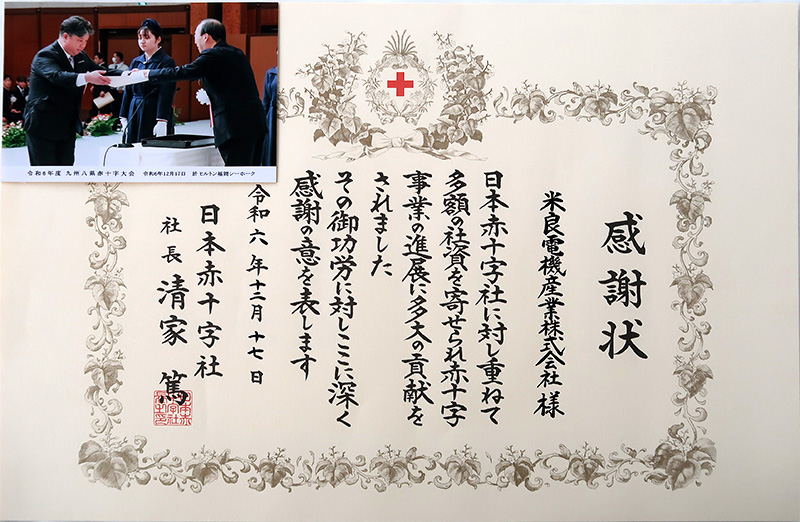 感謝状
米良電機産業株式会社 様
日本赤十字社に対し重ねて
多額の社資を寄せられ赤十字
事業の進展に多大の貢献を
されました
その御功労に対しここに深く
感謝の意を表します
令和六年十二月十七日
日本赤十字社
社長 清家 篤
令和6年度 九州八県赤十字大会 令和6年12月17日 於 ヒルトン福岡シーホーク